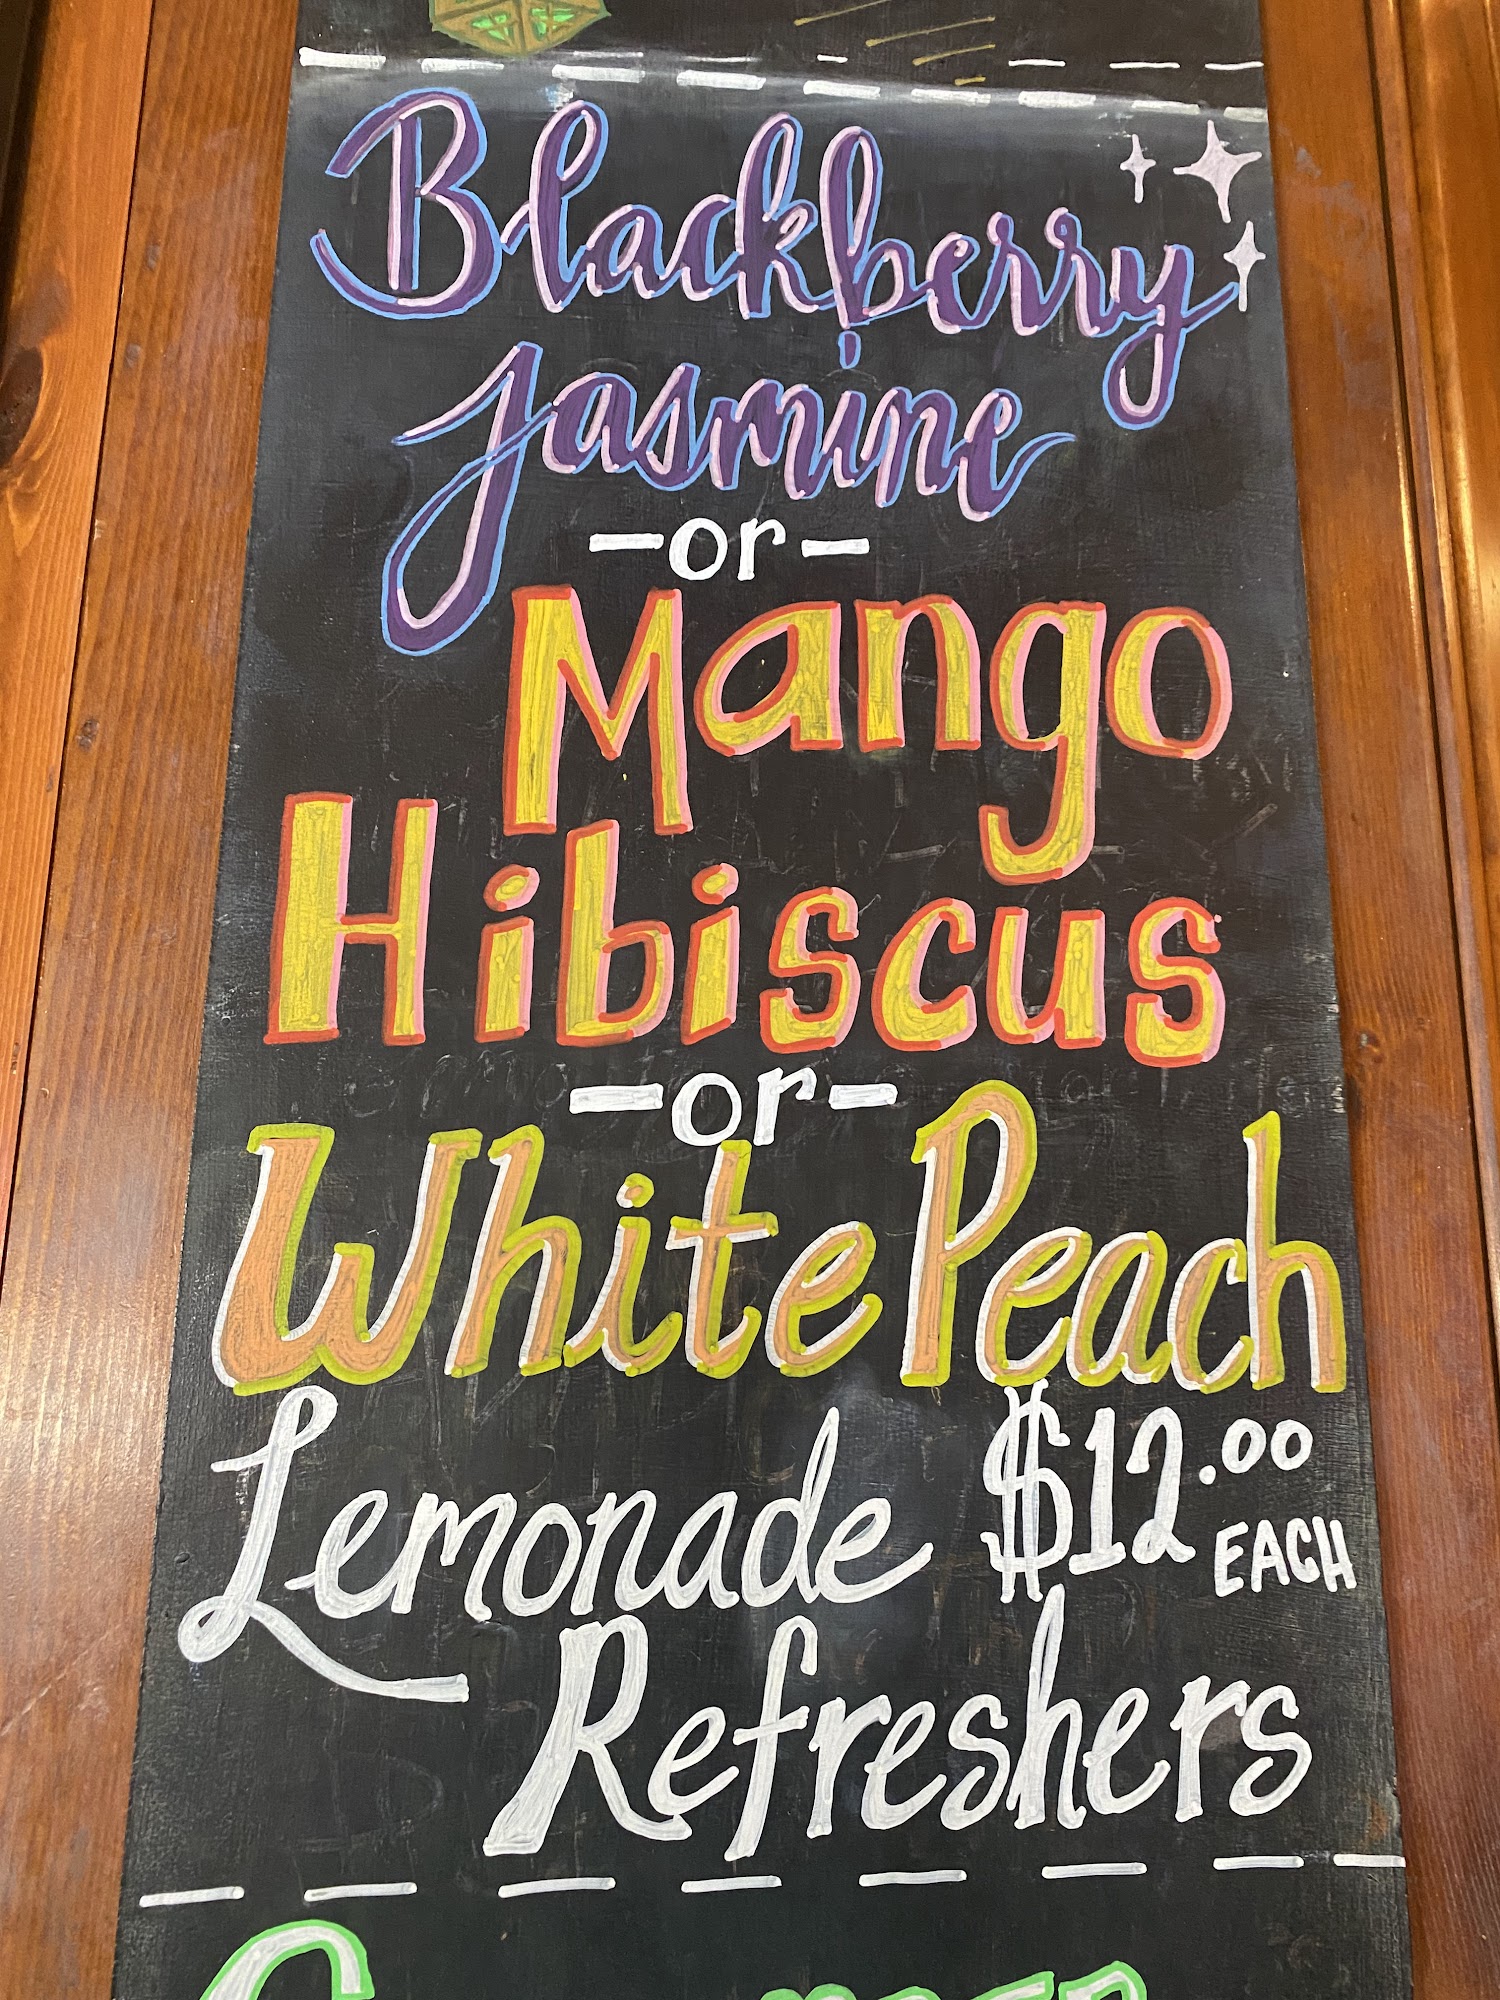 Blackberry
Jasmine
-or-
Mango
Hibiscus
-or-
White Peach
Lemonade $12.00 EACH
Refreshers